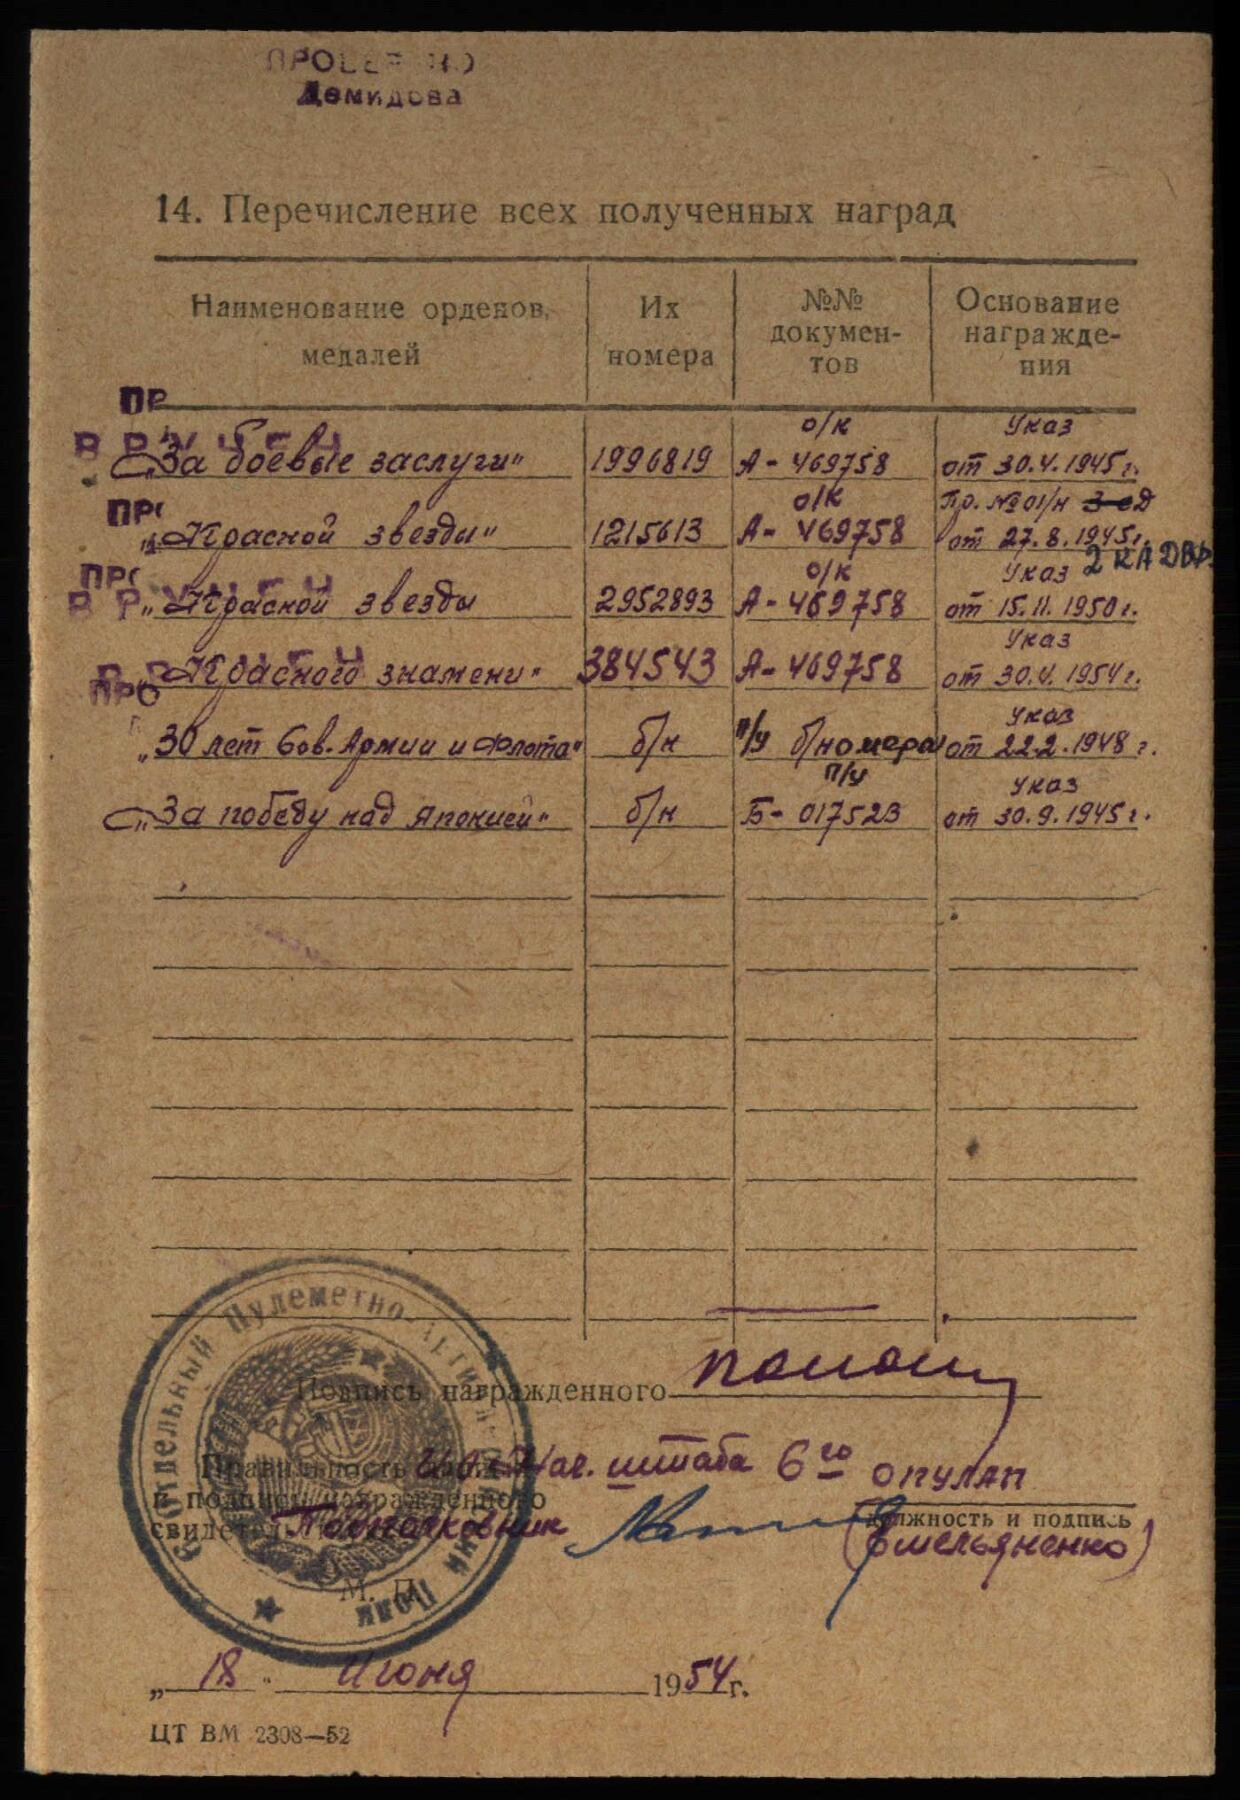 Демидова
14. Перечисление всех полученных наград
Наименование орденов, медалей
Их номера
№№ докумен-тов
Основание награжде-ния
ПР
о/к Указ
ВРУЧЕН
„За боевые заслуги" 1996819 А-469758 от 30.4.1945 г.
ПРО о/к Пр. № 01/н
„Красной звезды" 1215613 А-469758 от 27.8.1945 г.
2 КА ДВФ
ПРО о/к Указ
ВРУЧЕН
„Красной звезды 2952893 А-469758 от 15.11.1950 г.
Указ
„Красного знамени" 384543 А-469758 от 30.4.1954 г.
ПРО
Указ
„30 лет Сов. Армии и Флота" б/н п/у б/номера от 22.2.1948 г.
п/у Указ
„За победу над Японией" б/н Б-017523 от 30.9.1945 г.
Отдельный Пулеметно-Артиллерийский Полк
Подпись награжденного
Правильность Нач. штаба 6го ОПУЛАП
и подписи награжденного
свидетел Подполковник
должность и подпись
(Емельяненко)
М. П.
„18" Июня 1954 г.
ЦТ ВМ 2308—52